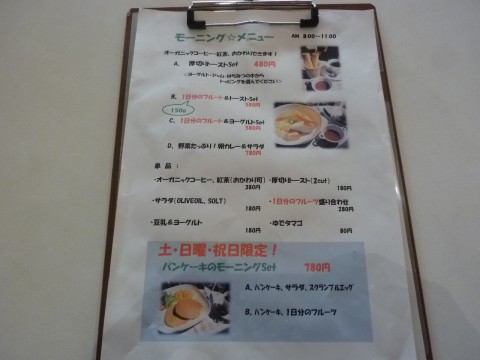 モーニング☆メニュー AM 8:00～11:00
オーガニックコーヒー・紅茶、おかわりできます！
A. 厚切りトーストSet 480円
<ヨーグルト・ジャム・はちみつの中から
トッピングを選んでください>
B. 1日分のフルーツ&トーストSet
580円
150g
C. 1日分のフルーツ&ヨーグルトSet
580円
D. 野菜たっぷり！朝カレー&サラダ
780円
単品：
・オーガニックコーヒー、紅茶(おかわり可) ・厚切りトースト(2cut)
380円 180円
・サラダ(OLIVEOIL, SOLT) ・1日分のフルーツ盛り合わせ
180円 280円
・豆乳&ヨーグルト ・ゆでタマゴ
180円 80円
土・日曜・祝日限定！
パンケーキのモーニングSet 780円
A. パンケーキ、サラダ、スクランブルエッグ
B. パンケーキ、1日分のフルーツ